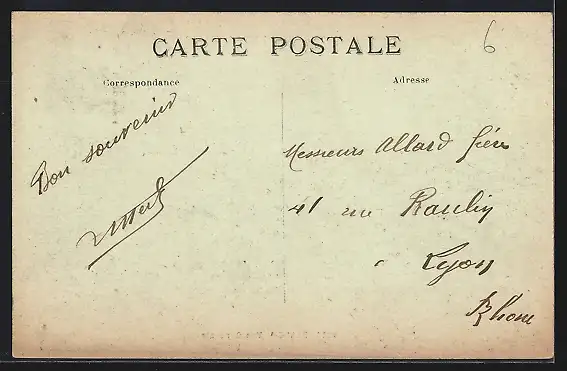 6
CARTE POSTALE
Correspondance
Adresse
Bon souvenir
Messieurs Allard frères
41 rue Raulin
à Lyon
Rhone